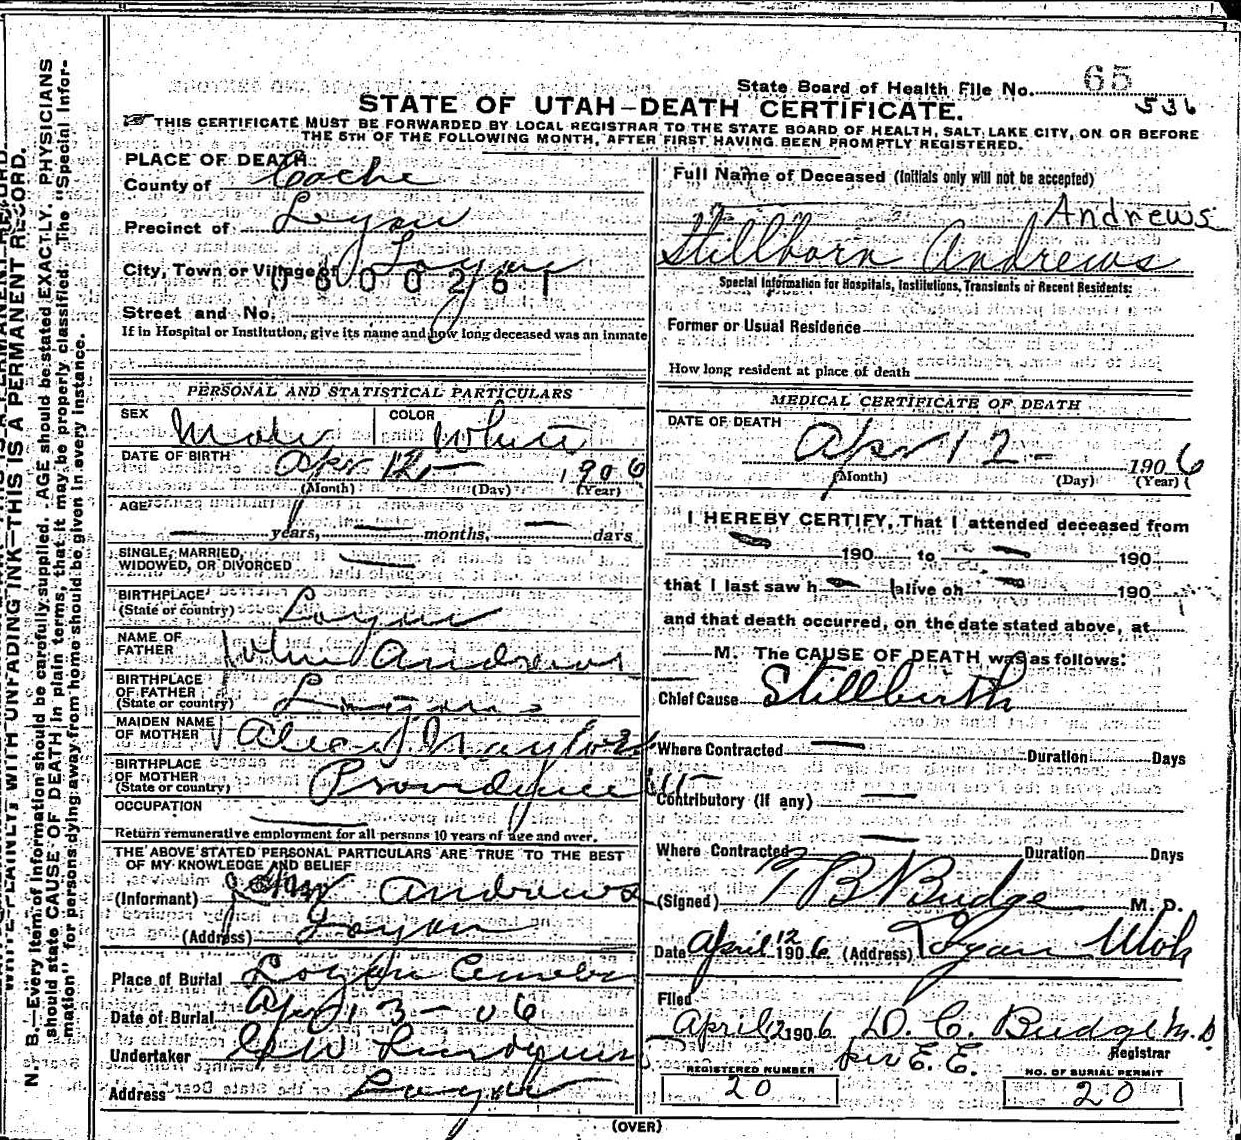 State Board of Health File No. 65
536
STATE OF UTAH—DEATH CERTIFICATE.
THIS CERTIFICATE MUST BE FORWARDED BY LOCAL REGISTRAR TO THE STATE BOARD OF HEALTH, SALT LAKE CITY, ON OR BEFORE
THE 5TH OF THE FOLLOWING MONTH, AFTER FIRST HAVING BEEN PROMPTLY REGISTERED.
PLACE OF DEATH:
County of Cache
Precinct of Logan
City, Town or Village of Logan
0600261
Street and No.
If in Hospital or Institution, give its name and how long deceased was an inmate
PERSONAL AND STATISTICAL PARTICULARS
SEX Male COLOR White
DATE OF BIRTH Apr 12 1906
(Month) (Day) (Year)
AGE
— years, — months, — days
SINGLE, MARRIED,
WIDOWED, OR DIVORCED —
BIRTHPLACE
(State or country) Logan
NAME OF
FATHER John Andrews
BIRTHPLACE
OF FATHER
(State or country) Logan
MAIDEN NAME
OF MOTHER
BIRTHPLACE
OF MOTHER
(State or country) Providence
OCCUPATION —
Return remunerative employment for all persons 10 years of age and over.
THE ABOVE STATED PERSONAL PARTICULARS ARE TRUE TO THE BEST
OF MY KNOWLEDGE AND BELIEF
(Informant) Andrews
(Address) Logan
Place of Burial Logan
Date of Burial Apr 13 - 06
Undertaker
Address Logan
Full Name of Deceased (Initials only will not be accepted)
Andrews
Stillborn Andrews
Special Information for Hospitals, Institutions, Transients or Recent Residents:
Former or Usual Residence
How long resident at place of death
MEDICAL CERTIFICATE OF DEATH
DATE OF DEATH
Apr 12 - 1906
(Month) (Day) (Year)
I HEREBY CERTIFY, That I attended deceased from
— 190 to — 190
that I last saw h— alive on — 190
and that death occurred, on the date stated above, at
— M. The CAUSE OF DEATH was as follows:
Chief Cause Stillbirth
Where Contracted — Duration Days
Contributory (if any) —
Where Contracted — Duration Days
(Signed) T B Budge M. D.
Date April 12 1906 (Address) Logan Utah
Filed
April 12 1906 D. C. Budge M.D
Registrar
per E. E.
REGISTERED NUMBER
20
NO. OF BURIAL PERMIT
20
(OVER)
WRITE PLAINLY, WITH UNFADING INK—THIS IS A PERMANENT RECORD.
N. B.—Every item of information should be carefully supplied. AGE should be stated EXACTLY. PHYSICIANS
should state CAUSE OF DEATH in plain terms, that it may be properly classified. The "Special Infor-
mation" for persons dying away from home should be given in every instance.